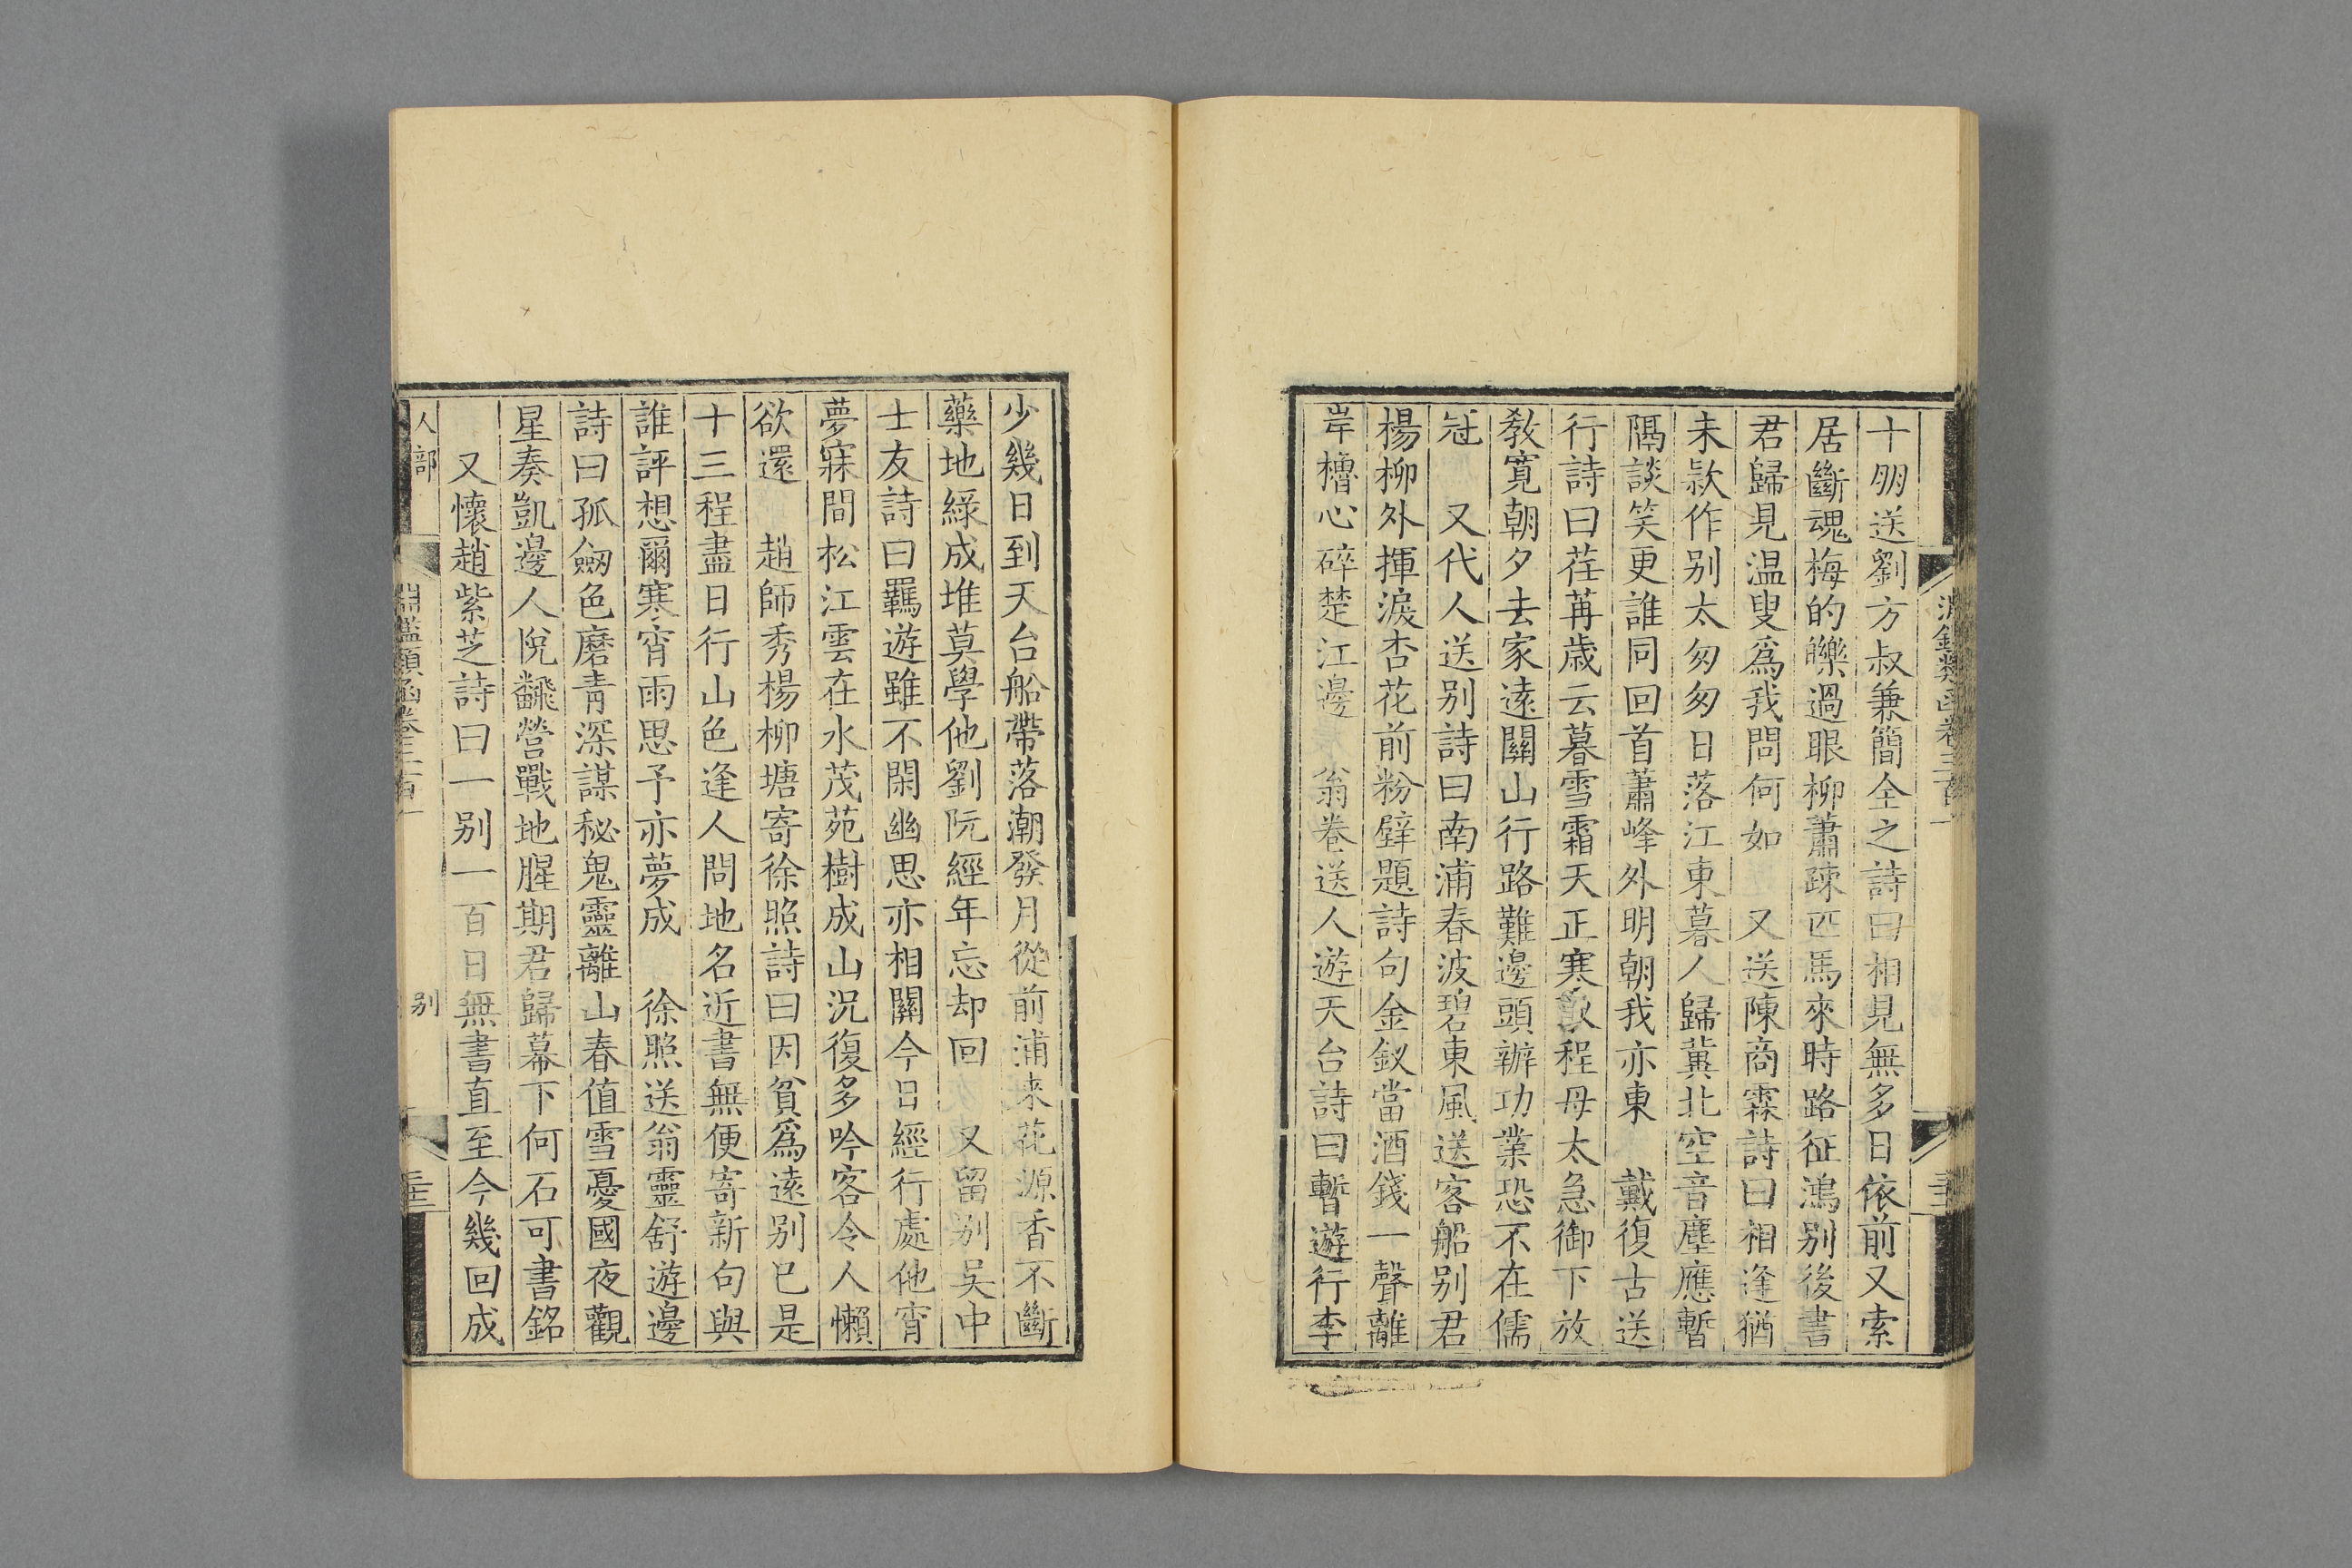 淵鑑類函卷三百一
十朋送劉方叔兼簡全之詩曰相見無多日依前又索
居斷魂梅的皪過眼柳蕭疎匹馬來時路征鴻别後書
君歸見温叟爲我問何如　又送陳商霖詩曰相逢猶
未欵作别太匆匆日落江東暮人歸冀北空音塵應暫
隔談笑更誰同回首蕭峰外明朝我亦東　戴復古送
行詩曰荏苒歳云暮雪霜天正寒歡程母太急御下放
教寛朝夕去家遠關山行路難邊頭辦功業恐不在儒
冠　又代人送别詩曰南浦春波碧東風送客船别君
楊柳外揮淚杏花前粉壁題詩句金釵當酒錢一聲離
岸櫓心碎楚江邊　翁卷送人遊天台詩曰暫遊行李
少幾日到天台船帶落潮發月從前浦來花源香不斷
藥地綠成堆莫學他劉阮經年忘却回　又留别吴中
士友詩曰羈遊雖不閑幽思亦相關今日經行處他宵
夢寐間松江雲在水茂苑樹成山況復多吟客令人懶
欲還　趙師秀楊柳塘寄徐照詩曰因貧爲遠别已是
十三程盡日行山色逢人問地名近書無便寄新句與
誰評想爾寒宵雨思予亦夢成　徐照送翁靈舒遊邊
詩曰孤劒色磨青深謀秘鬼靈離山春值雪憂國夜觀
星奏凱邊人悅飜營戰地腥期君歸幕下何石可書銘
又懷趙紫芝詩曰一别一百日無書直至今幾回成
人部
淵鑑類函卷三百一
别